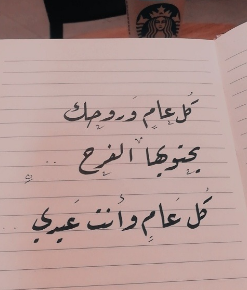 كُل عامٍ وَروحِك
يحتويها الفرح
كُل عَامٍ وأنت عَيدي